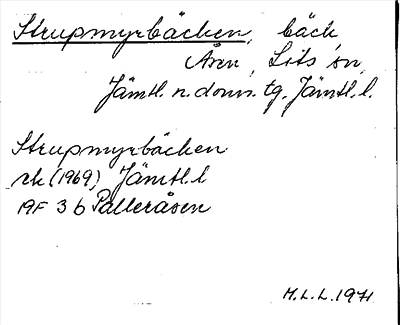 Strupmyrbäcken, bäck
Åsen, Lits sn,
Jämtl. n. doms. tg. Jämtl. l.
Strupmyrbäcken
rk (1969) Jämtl. l
19F 3 b Palleråsen
M.L.L. 1971